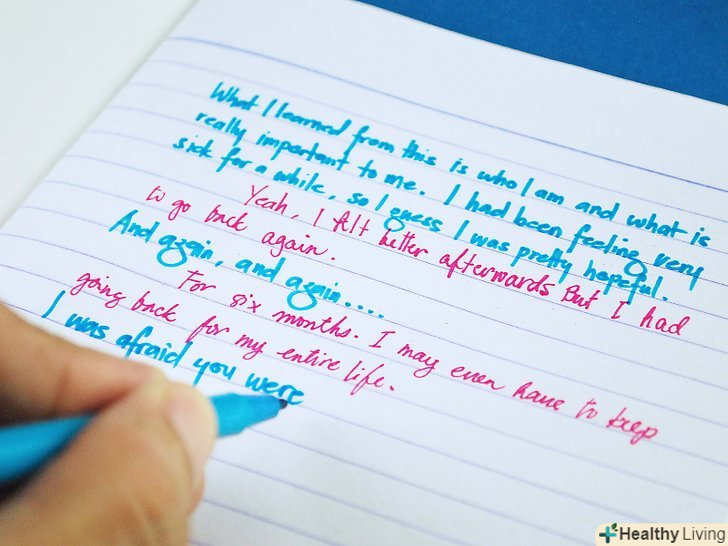 What I learned from this is who I am and what is
really important to me. I had been feeling very
sick for a while, so I guess I was pretty hopeful.
Yeah, I felt better afterwards But I had
to go back again.
And again, and again....
For six months. I may even have to keep
going back for my entire life.
I was afraid you were
Healthy Living